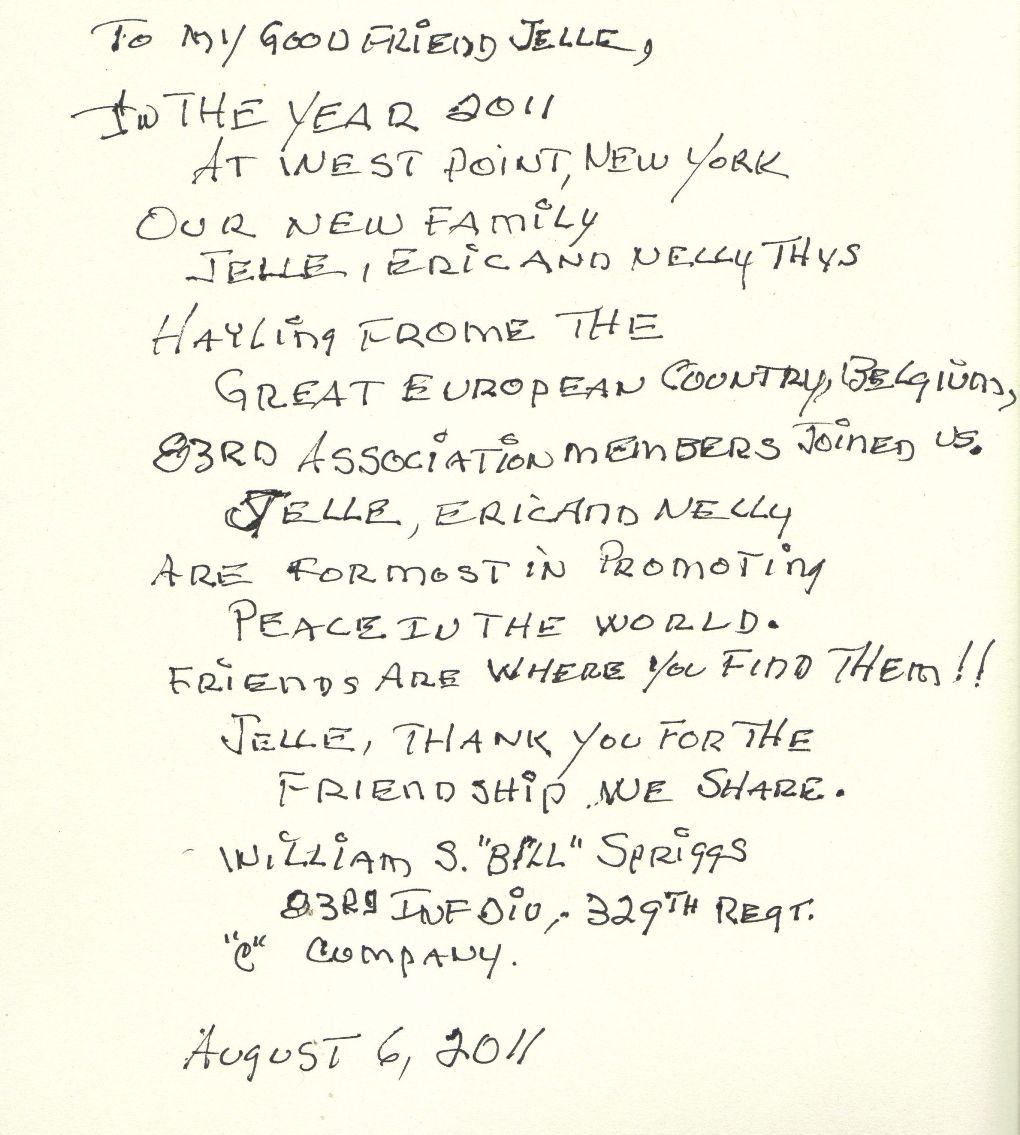 To MY GOOD FRIEND JELLE,
IN THE YEAR 2011
AT WEST POINT, NEW YORK
OUR NEW FAMILY
JELLE, ERIC AND NELLY THYS
HAYLING FROME THE
GREAT EUROPEAN COUNTRY, BELGIUM,
83RD ASSOCIATION MEMBERS JOINED US.
JELLE, ERIC AND NELLY
ARE FORMOST IN PROMOTING
PEACE IN THE WORLD.
FRIENDS ARE WHERE YOU FIND THEM!!
JELLE, THANK YOU FOR THE
FRIENDSHIP WE SHARE.
WILLIAM S. "BILL" SPRIGGS
83RD INF DIV,. 329TH REGT.
"C" COMPANY.
AUGUST 6, 2011